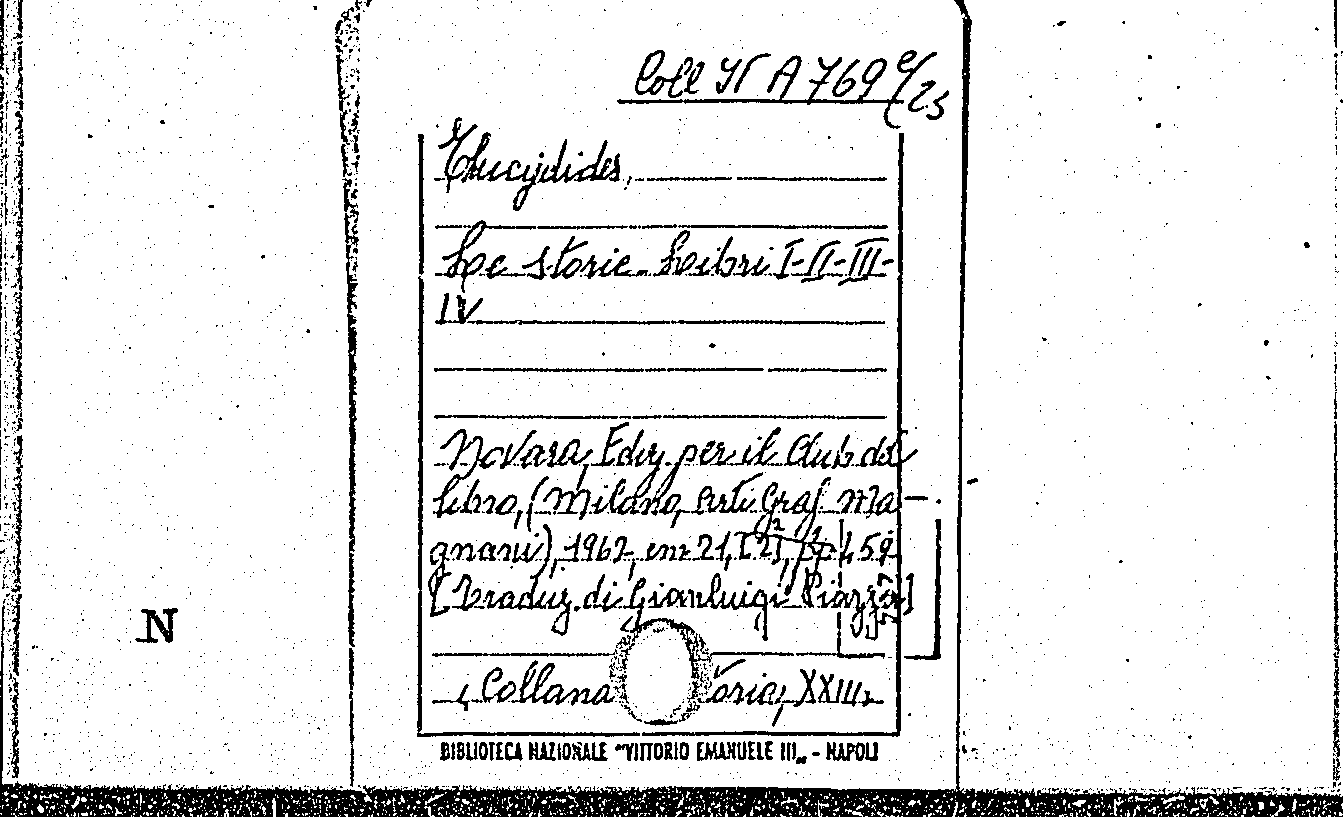 Coll It A 769 e/25
Thucydides,
Le storie. Libri I-II-III-
IV
Novara, Ediz. per il Club del
libro, (Milano, Arti Graf. Ma-
gnani), 1962, cm 21,
[Traduz. di Gianluigi Piazza]
, Collana
XXIII.
N
BIBLIOTECA NAZIONALE "VITTORIO EMANUELE III„ - NAPOLI